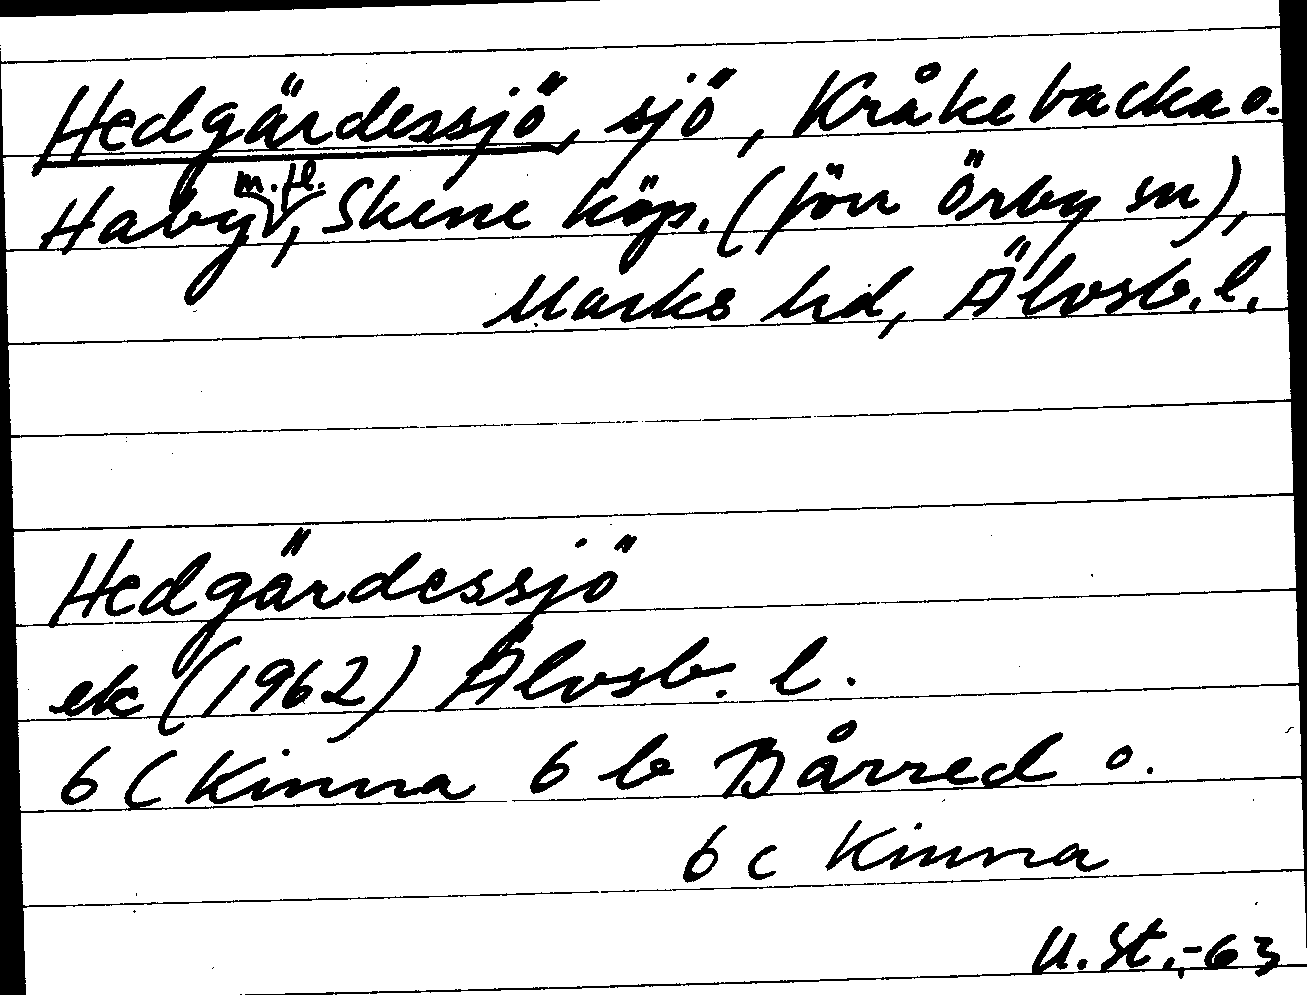 Hedgärdessjö, sjö, Kråkebacka o.
Haby m.fl., Skene köp. (förr Örby sn),
Marks hd, Älvsb. l.
Hedgärdessjö
ek (1962) Älvsb. l.
6 C Kinna 6 b Bårred o.
6 c Kinna
U. St., -63